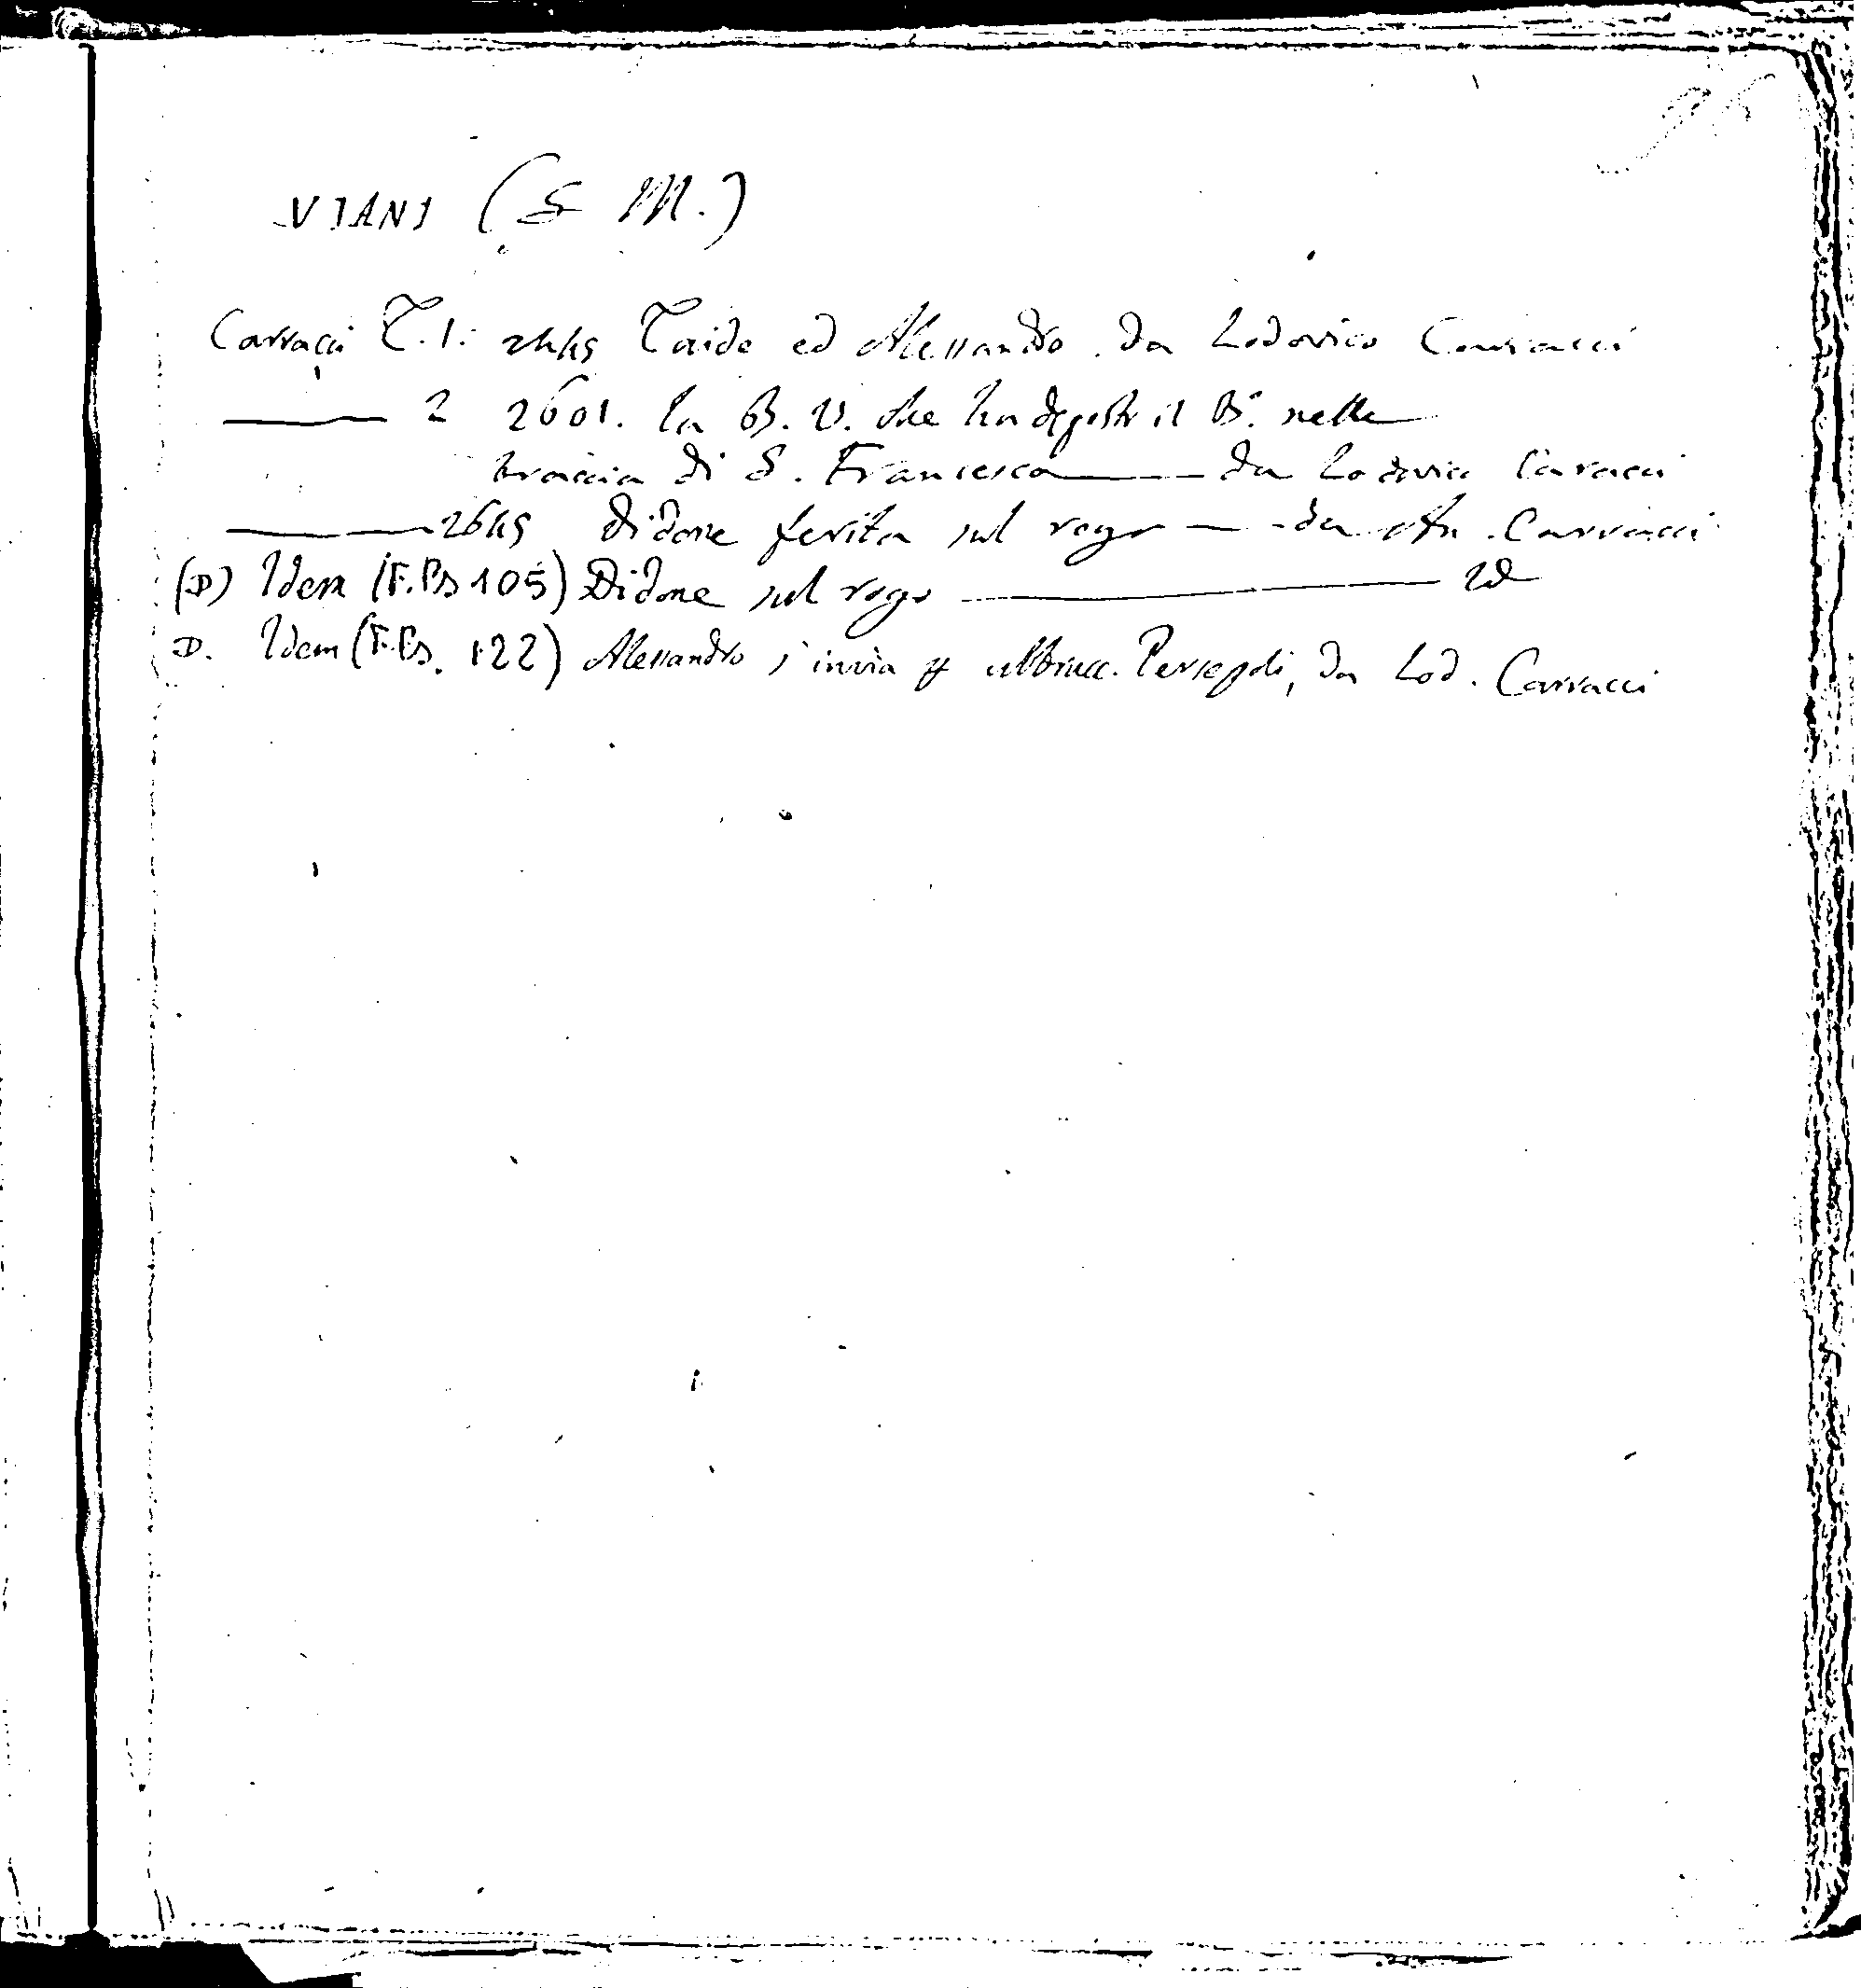 VIANI (S M.)
Carracci T. 1. 2445 Taide ed Alessandro. da Lodovico Carracci
2 2601. la B. V. che ha deposto il B. nelle
braccia di S. Francesco da Lodovico Caracci
2645 Didone ferita sul rogo da An. Carracci
(D) Idem (F.Bs 105) Didone sul rogo Id
D. Idem (F.Bs. 122) Alessandro s'invia Persepoli, da Lod. Carracci